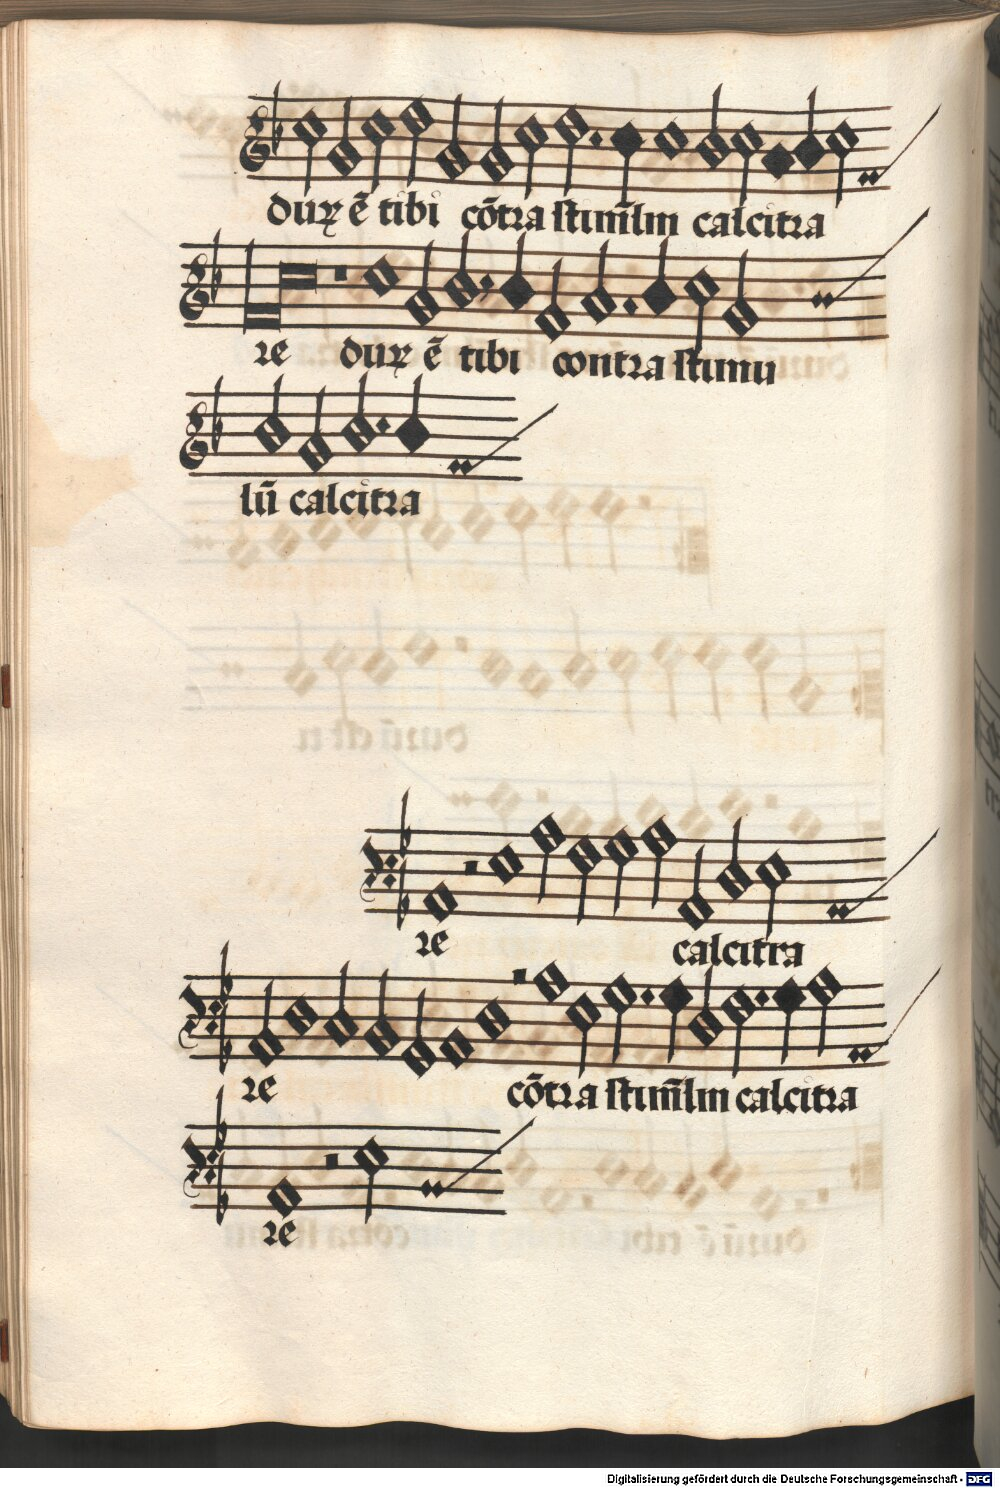 durꝝ ē tibi cōtra stimu̅lm calcitra
re durꝝ ē tibi contra stimu
lū calcitra
re calcitra
re cōtra stimu̅lm calcitra
re
Digitalisierung gefördert durch die Deutsche Forschungsgemeinschaft - DFG